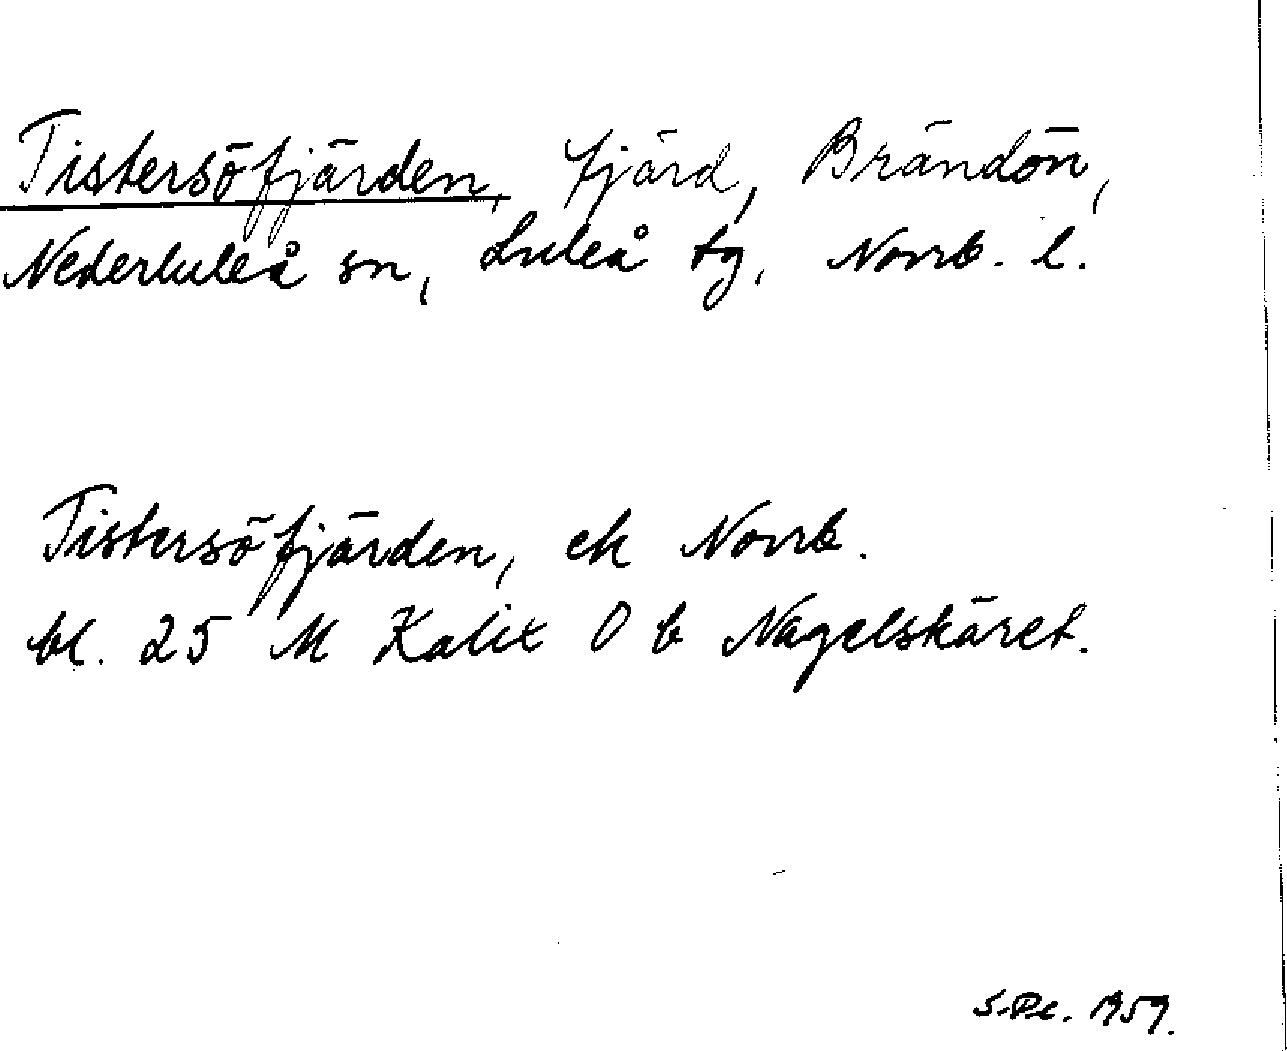 Tistersöfjärden, fjärd, Brändön,
Nederluleå sn, Luleå tg, Norrb. l.
Tistersöfjärden, ek Norrb.
bl. 25 M Kalix O b Nagelskäret.
1959.